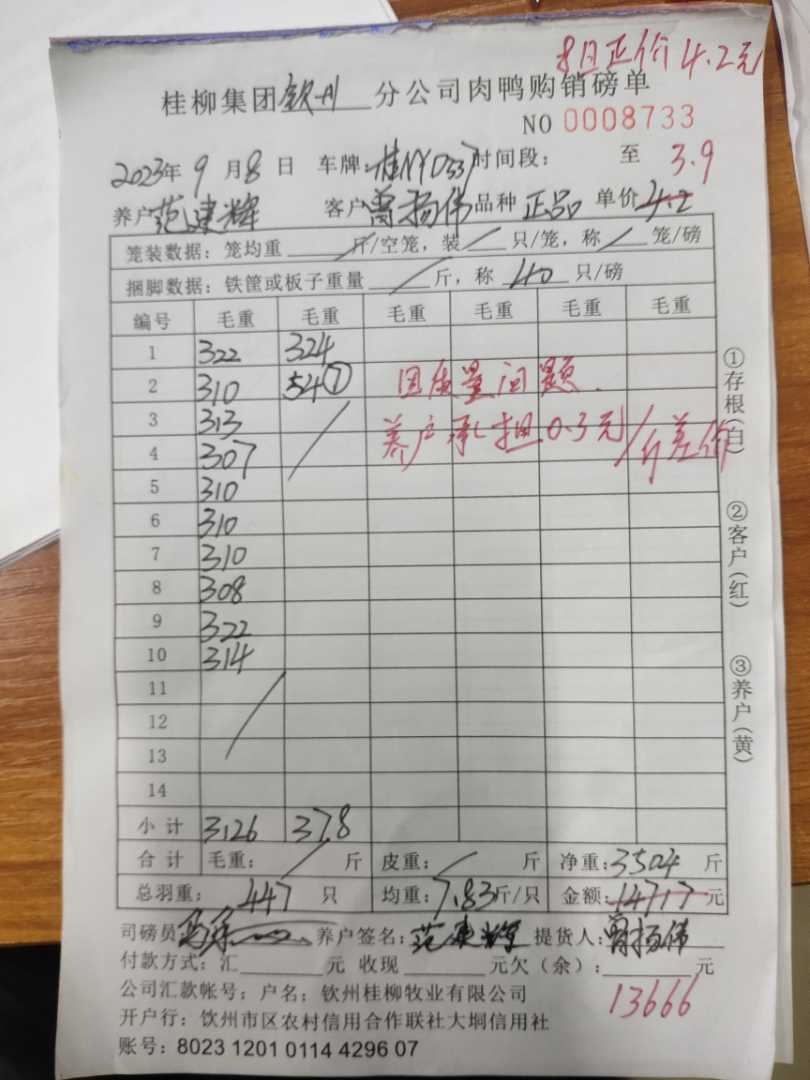 8日正价4.2元
桂柳集团钦州分公司肉鸭购销磅单
NO 0008733
2023年9月8日 车牌:桂NY0337时间段: 至 3.9
养户范建辉 客户曾扬伟 品种 正品 单价4.2
笼装数据: 笼均重 / 斤/空笼, 装 / 只/笼, 称 / 笼/磅
捆脚数据: 铁筐或板子重量 / 斤, 称 40 只/磅
编号 毛重 毛重 毛重 毛重 毛重 毛重
1 322 324
2 310 54⑦ 因质量问题.
3 313 养户承担0.3元/斤差价
4 307
5 310
6 310
7 310
8 308
9 322
10 314
11
12
13
14
小计 3126 378
合计 毛重: / 斤 皮重: / 斤 净重:3504 斤
总羽重: 447 只 均重:7.83斤/只 金额:14717元
司磅员 养户签名:范建辉 提货人:曾扬伟
付款方式: 汇 元 收现 元欠(余): 元
公司汇款帐号: 户名: 钦州桂柳牧业有限公司 13666
开户行: 钦州市区农村信用合作联社大垌信用社
账号: 8023 1201 0114 4296 07
①存根(白) ②客户(红) ③养户(黄)